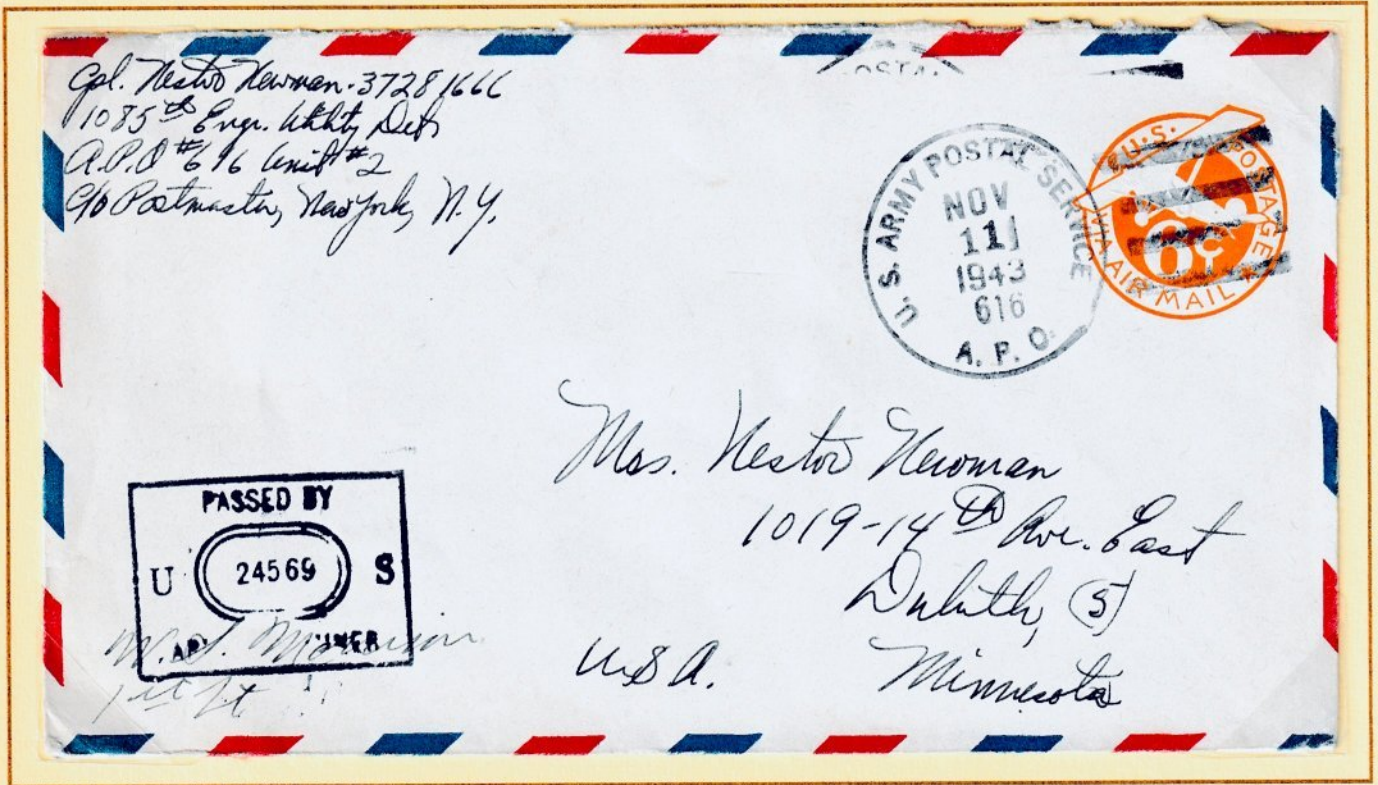 Cpl. Nestor Newman-37281666
1085th Engr. Utility Det.
A.P.O #616 Unit #2
c/o Postmaster, New York, N.Y.
U.S. ARMY POSTAL SERVICE
NOV
11
1943
616
A. P. O.
U.S. POSTAGE
6¢
VIA AIR MAIL
Mrs. Nestor Newman
1019-14th Ave. East
Duluth, (5)
Minnesota
U.S.A.
PASSED BY
U 24569 S
1st Lt